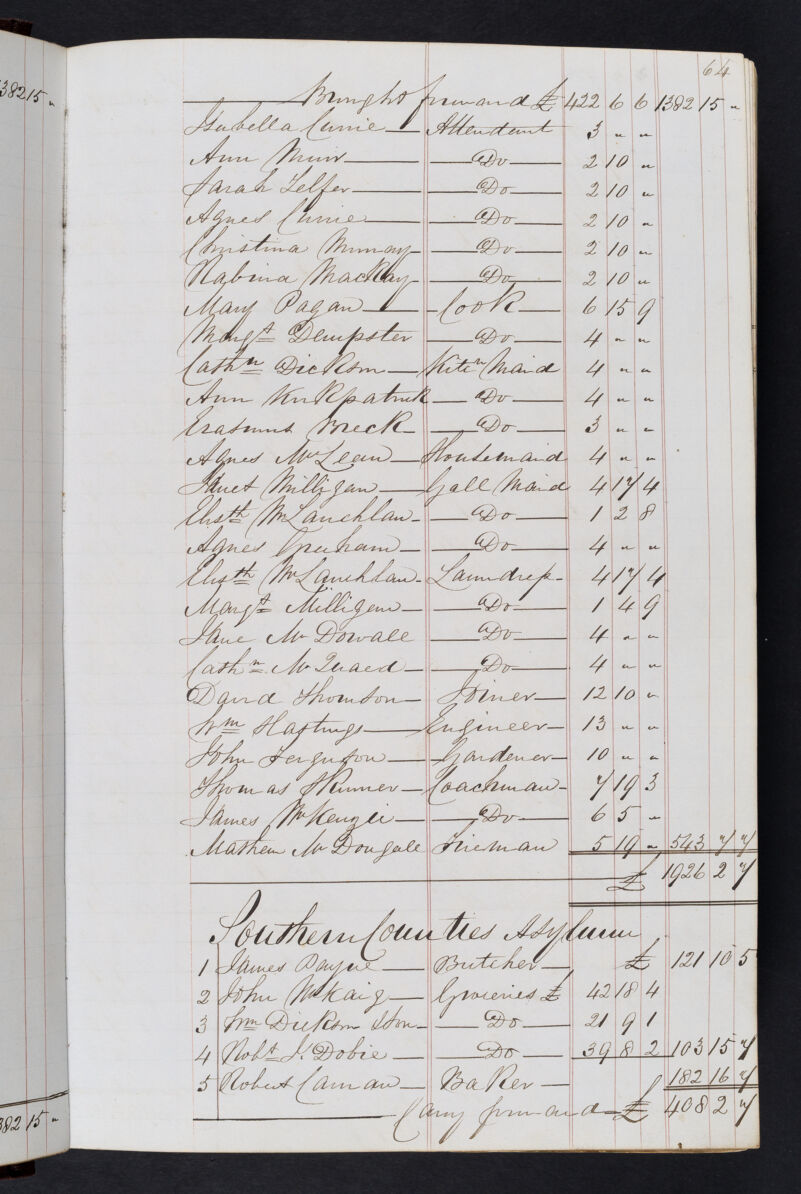 64
38215 "
Brought forward £ 422 6 6 1382 15 "
Isabella Currie Attendant 3 " "
Ann Muir Do 2 10 "
Sarah Telfer Do 2 10 "
Agnes Currie Do 2 10 "
Christina Murray Do 2 10 "
Robina MacKay Do 2 10 "
Mary Pagan Cook 6 15 9
Margt Dempster Do 4 " "
Cathn Dickson Kitn Maid 4 " "
Ann Kirkpatrick Do 4 " "
Erasmus Breck Do 3 " "
Agnes McLean Housemaid 4 " "
Janet Milligan Gall Maid 4 17 4
Elisth McLauchlan Do 1 2 8
Agnes Graham Do 4 " "
Elisth McLauchlan Laundress 4 17 4
Margt Milligan Do 1 4 9
Jane McDowall Do 4 " "
Cathn McQuaed Do 4 " "
David Thomson Joiner 12 10 "
Wm Hastings Engineer 13 " "
John Ferguson Gardener 10 " "
Thomas Skinner Coachman 7 19 3
James McKenzie Do 6 5 "
Mathew McDougall Fireman 5 19 " 543 7 7
£ 1926 2 7
Southern Counties Asylum
1 James Payne Butcher £ 121 10 5
2 John McKaig Groceries £ 42 18 4
3 Wm Dickson & Son Do 21 9 1
4 Robt J. Dobie Do 39 8 2 103 15 7
5 Robert Carnan Baker 182 16 7
Carry forward £ 408 2 7
382 15 "